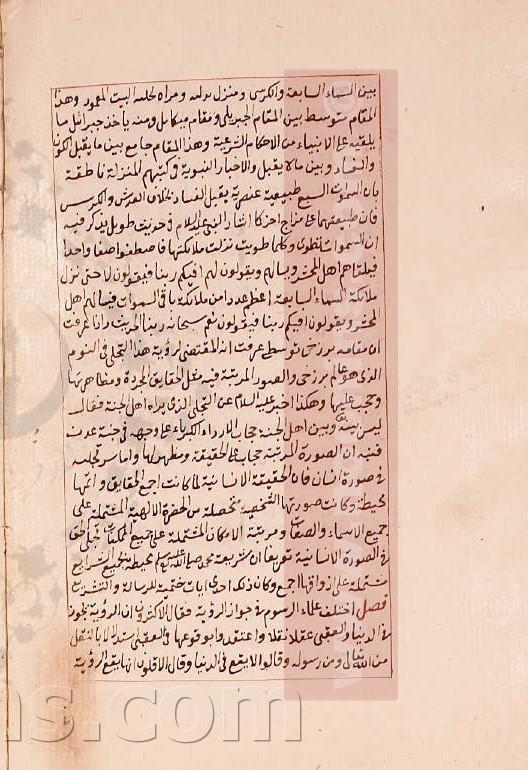 بين السماء السابعة والكرسى ومنزل ومراه البيت المعمور وهذا
المقام متوسط بين المقام الجبريلى ومقام ميكايل ومنه ياخذ جبرائيل ما
يلقيه على الانبياء من الاحكام الشرعية وهذا المقام جامع بين ما يقبل الكون
والفساد وبين ما لا يقبل والاخبار النبوية وكتبهم المنزلة ناطقة
بان السموات السبع طبيعية عنصرية يقبل الفساد بخلاف العرش والكرسى
فان طبيعتهما على مزاج اخر كما اشار النبى عليه السلام فى حديث طويل يذكر فيه
ان السموات تنطوى وكلما طويت نزلت ملائكتها فاصطفوا صفا واحدا
اهل المحشر ويقولون لهم افيكم ربنا فيقولون لا حتى نزل
ملائكة السماء السابعة اعظم عددا من ملائكة باقى السموات اهل
المحشر ويقولون افيكم ربنا فيقولون نعم سبحانه ربنا الحديث
ان مقامه برزخى توسط عرفت انه المقتضى لرؤية هذا التجلى فى النوم
الذى هو عالم برزخى والصور المرتبة فيه مثل الحقايق المجردة ومظاهر لها
وحجب عليها وهكذا اخبر عليه السلام عن التجلى الذى يراه اهل الجنة فقال
ليس بينه وبين اهل الجنة حجاب الا رداء الكبرياء على وجهه فى جنة عدن
فنبه ان الصورة المرتبة حجاب على الحقيقة ومظهر لها واما سر تجليه
فى صورة انسان فان الحقيقة الانسانية لما كانت اجمع الحقايق واتمها
محيطة وكانت صورتها الشخصية متحصلة من الحضرة الالهية المشتملة على
جميع الاسماء والصفات ومرتبة الامكان المشتملة على جميع الممكنات تجلى الحق
فى الصورة الانسانية تعريفا ان شريعة محمد صلى الله عليه وسلم محيطة بجميع الشرايع
مشتملة على اذواقها اجمع وكان ذلك احدى ايات ختمية للرسالة والتشريع
فصل اختلف علماء الرسوم فى جواز الرؤية فقال الاكثرون ان الرؤية يجوز
فى الدنيا والعقبى عقلا ونقلا واعتقدوا بوقوعها فى العقبى
من الله تعالى ومن رسوله وقالوا لا يقع فى الدنيا وقال الاقلون انها يقع الرؤية
ns.com